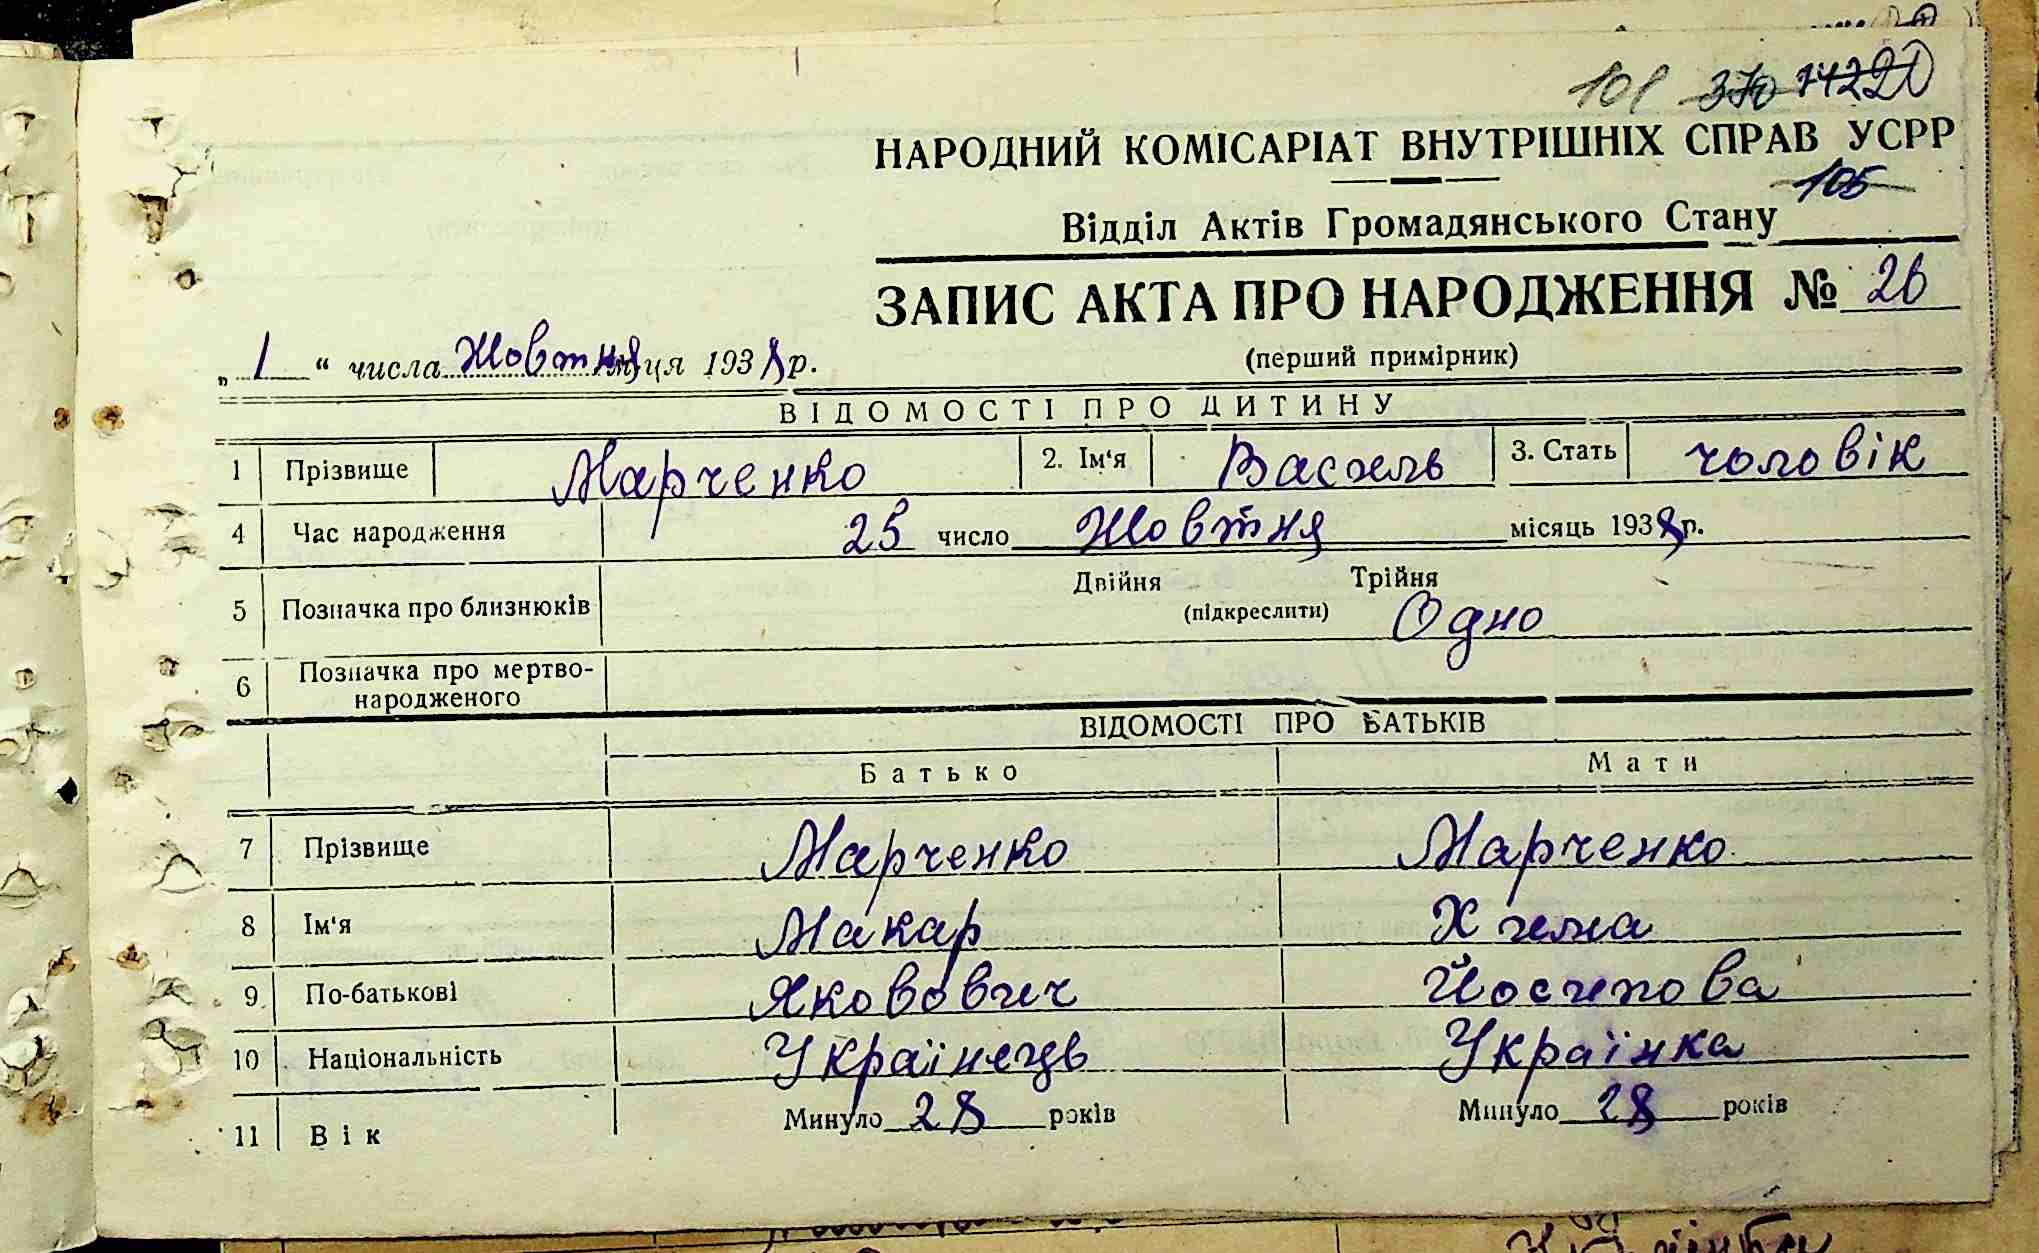 101 370 14220
НАРОДНИЙ КОМІСАРІАТ ВНУТРІШНІХ СПРАВ УСРР
105
Відділ Актів Громадянського Стану
ЗАПИС АКТА ПРО НАРОДЖЕННЯ № 26
„ 1 “ числа Жовтня м-ця 1938 р.
(перший примірник)
ВІДОМОСТІ ПРО ДИТИНУ
1 Прізвище Марченко 2. Ім'я Василь 3. Стать чоловік
4 Час народження 25 число Жовтня місяць 1938 р.
5 Позначка про близнюків Двійня Трійня
(підкреслити) Одно
6 Позначка про мертво-
народженого
ВІДОМОСТІ ПРО БАТЬКІВ
Батько Мати
7 Прізвище Марченко Марченко
8 Ім'я Макар
9. По-батькові Якович Йосипова
10 Національність Українець Українка
11 Вік Минуло 28 років Минуло 28 років